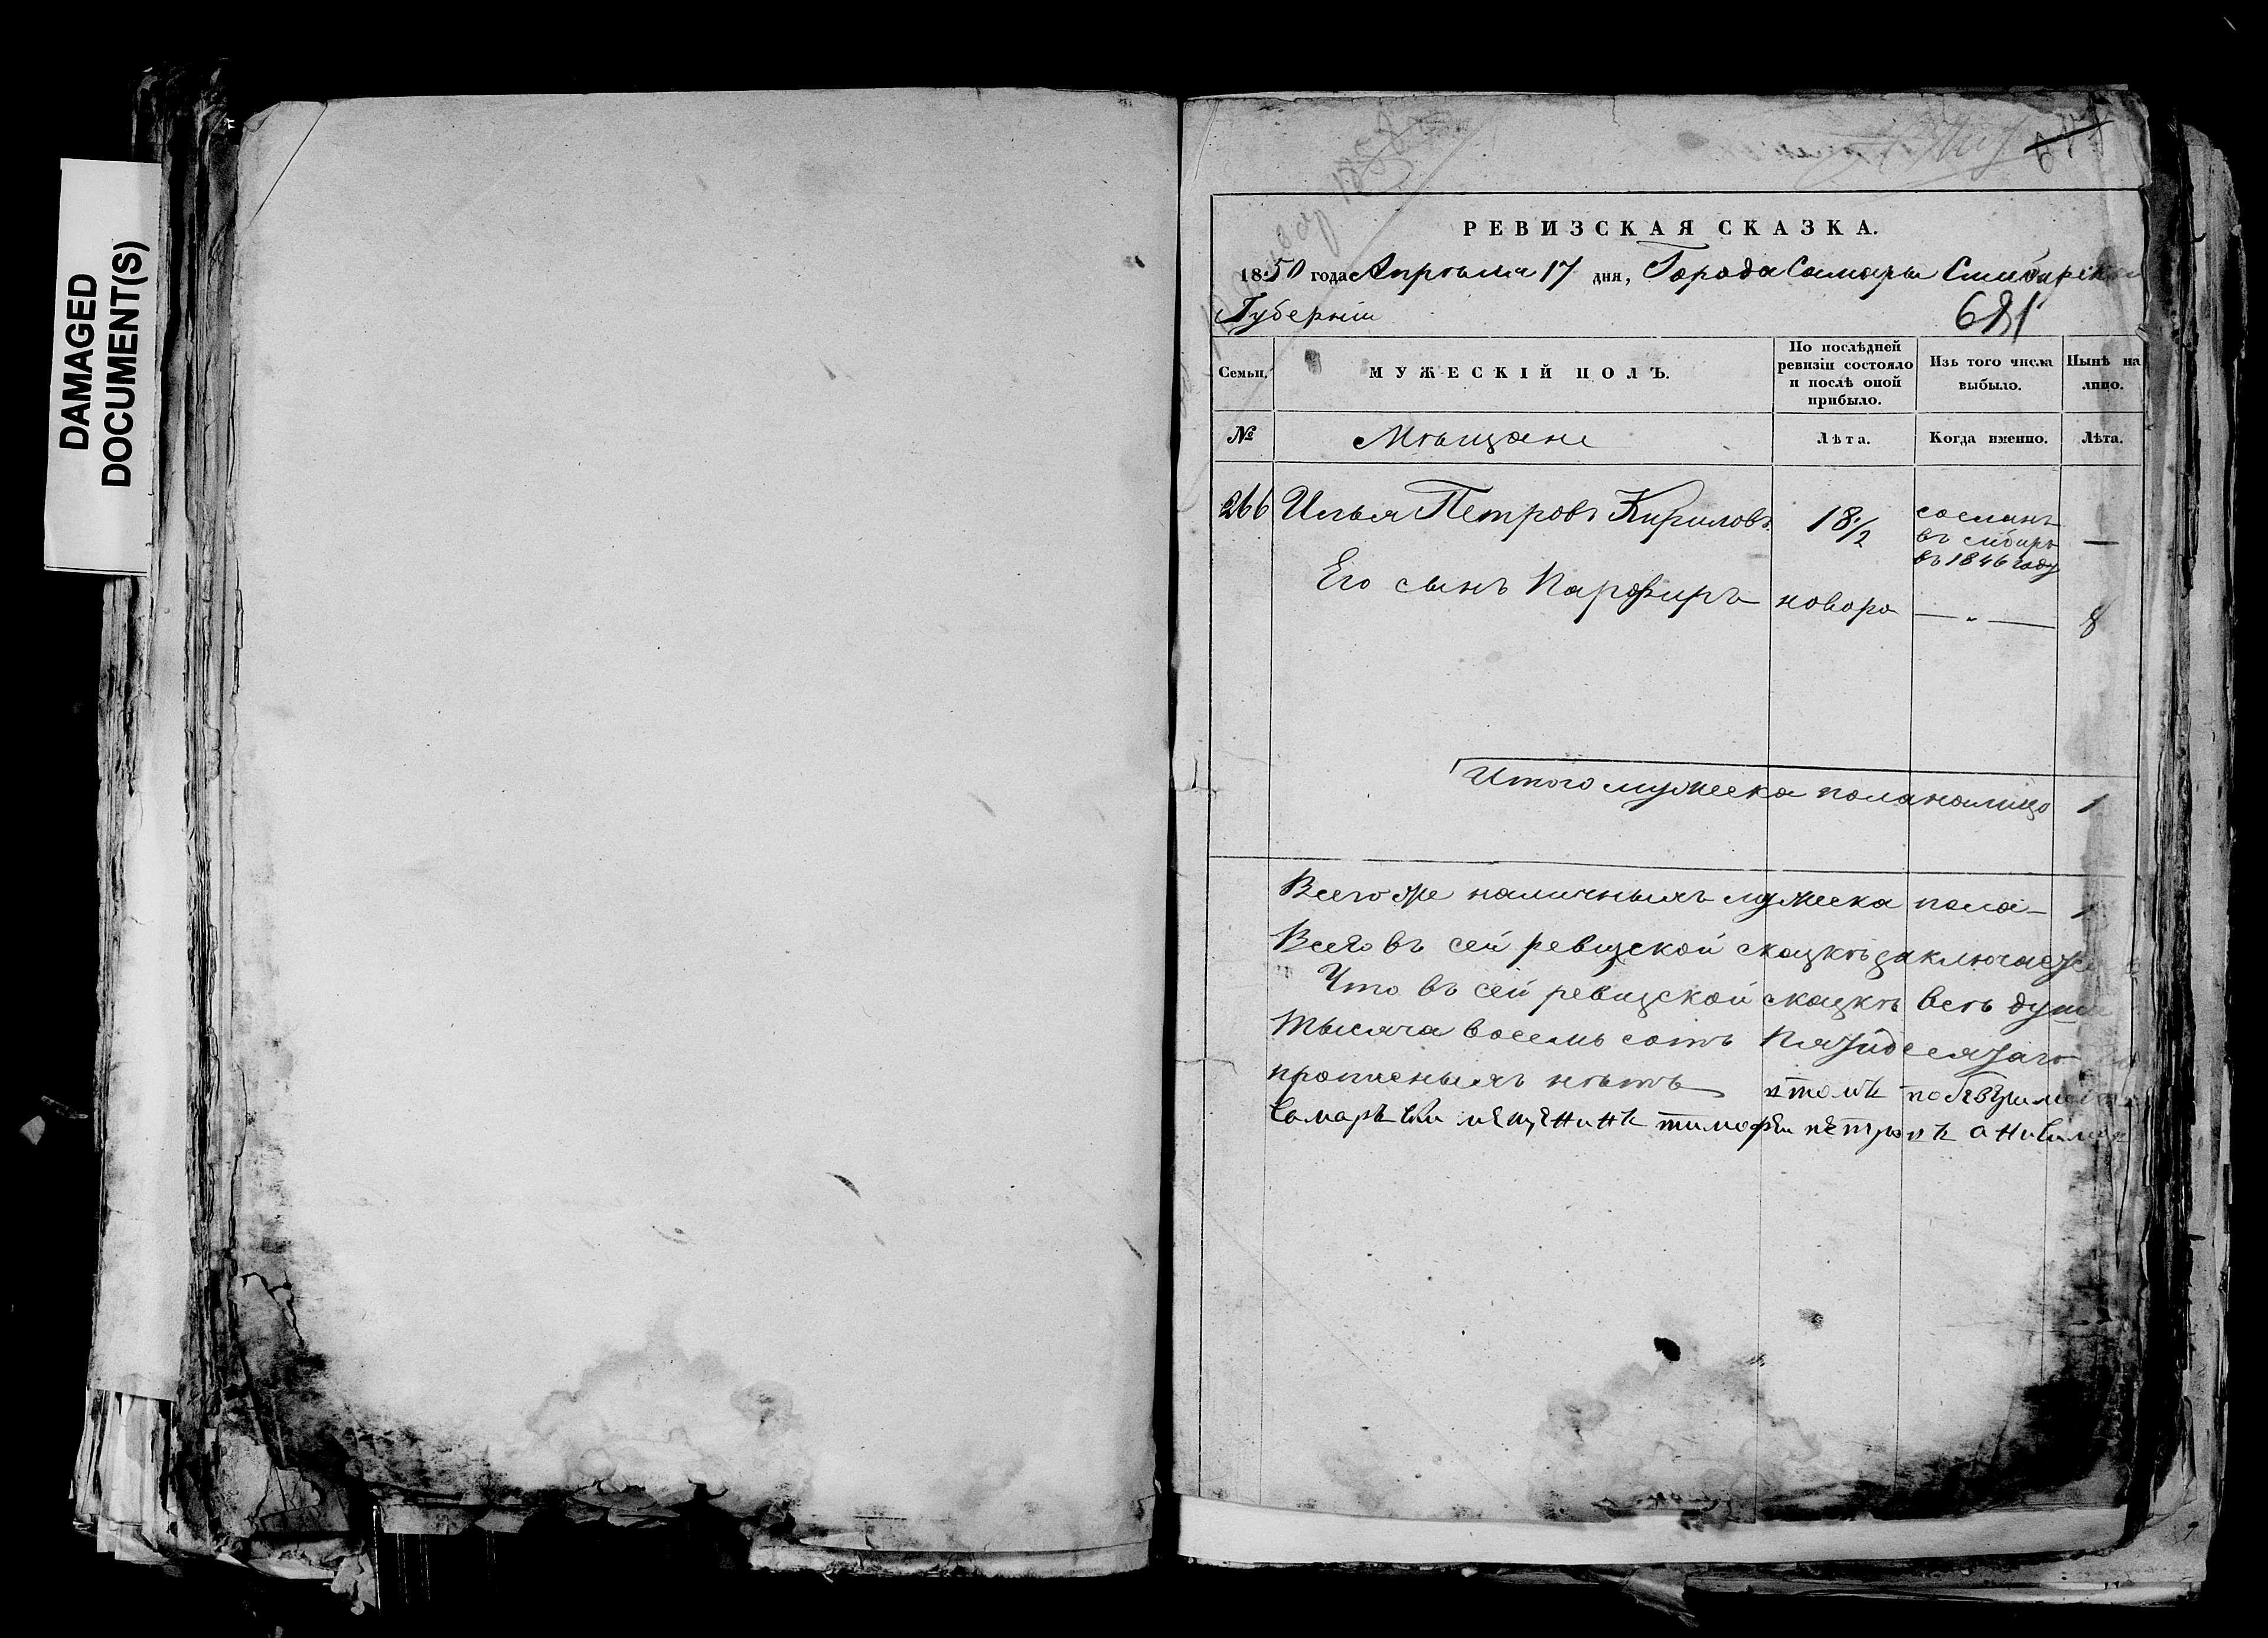 DAMAGED
DOCUMENT(S)
РЕВИЗСКАЯ СКАЗКА.
1850 года Апрѣля 17 дня, Города Самары Симбирской
Губерніи
681
Семьи. МУЖЕСКІЙ ПОЛЪ. По послѣдней ревизіи состояло и послѣ оной прибыло. Изъ того числа выбыло. Нынѣ на лицо.
№ Мѣщане Лѣта. Когда именно. Лѣта.
266 Илья Петровъ Кириловъ 18 1/2 сосланъ —
въ сибирь
въ 1846 году
Его сынъ Парфиръ новоро — „ — 8
Итого мужеска пола налицо 1
Всего же наличныхъ мужеска пола — 1
Всего въ сей ревизской сказкѣ заключается
Что въ сей ревизской сказкѣ всѣ души
тысяча восемь сотъ Пятидесятаго
прописныхъ нѣтъ втомъ
тимофеи петровъ